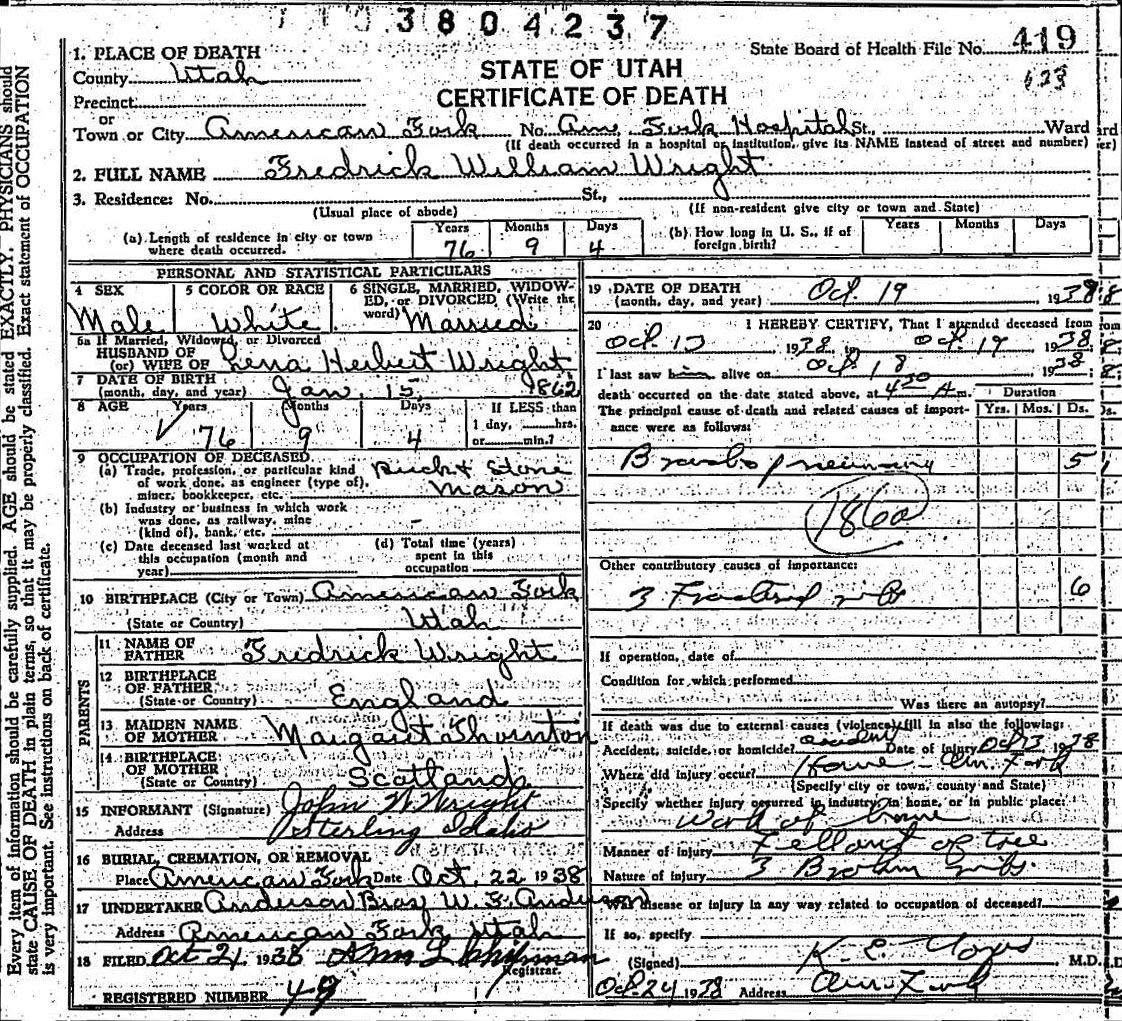 3 8 0 4 2 3 7
State Board of Health File No. 419
STATE OF UTAH
CERTIFICATE OF DEATH
1. PLACE OF DEATH
County Utah
Precinct
or
Town or City American Fork No. Am. Fork Hospital St., Ward
(If death occurred in a hospital or institution, give its NAME instead of street and number)
2. FULL NAME Fredrick William Wright
3. Residence: No. St.,
(Usual place of abode) (If non-resident give city or town and State)
(a) Length of residence in city or town where death occurred. Years 76 Months 9 Days 4
(b) How long in U. S., if of foreign birth? Years Months Days
PERSONAL AND STATISTICAL PARTICULARS
4 SEX Male
5 COLOR OR RACE White
6 SINGLE, MARRIED, WIDOWED, or DIVORCED, (Write the word) Married
6a If Married, Widowed, or Divorced
HUSBAND OF
(or) WIFE OF Lena Herbert Wright
7 DATE OF BIRTH
(month, day, and year) Jan. 15, 1862
8 AGE Years 76 Months 9 Days 4 If LESS than
1 day, hrs.
or min.?
9 OCCUPATION OF DECEASED
(a) Trade, profession, or particular kind of work done, as engineer (type of), miner, bookkeeper, etc. Brick & Stone Mason
(b) Industry or business in which work was done, as railway, mine (kind of), bank, etc. -
(c) Date deceased last worked at this occupation (month and year)
(d) Total time (years) spent in this occupation
10 BIRTHPLACE (City or Town) American Fork
(State or Country) Utah
PARENTS
11 NAME OF FATHER Fredrick Wright
12 BIRTHPLACE OF FATHER (State or Country) England
13 MAIDEN NAME OF MOTHER Margaret Thornton
14 BIRTHPLACE OF MOTHER (State or Country) Scotland
15 INFORMANT (Signature) John W Wright
Address Sterling Idaho
16 BURIAL, CREMATION, OR REMOVAL
Place American Fork Date Oct. 22 1938
17 UNDERTAKER Anderson Bros. W. F. Anderson
Address American Fork Utah
18 FILED Oct 21 1938
Registrar.
REGISTERED NUMBER 49
19 DATE OF DEATH
(month, day, and year) Oct. 19 1938
20 I HEREBY CERTIFY, That I attended deceased from
Oct. 13 1938 Oct. 19 1938
I last saw him alive on Oct 18 1938
death occurred on the date stated above, at 4:30 A m.
The principal cause of death and related causes of importance were as follows:
Duration
Yrs. Mos. Ds.
Broncho pneumonia 5
186a
Other contributory causes of importance:
3 Fractured ribs 6
If operation, date of
Condition for which performed
Was there an autopsy?
If death was due to external causes (violence) fill in also the following:
Accident, suicide, or homicide? accident Date of Injury Oct 13 1938
Where did injury occur? Home - Am. Fork
(Specify city or town, county and State)
Specify whether injury occurred in industry, in home, or in public place:
Work at home
Manner of injury Fell out of tree
Nature of injury 3 Broken ribs
Was disease or injury in any way related to occupation of deceased?
If so, specify
(Signed) K. E. M.D.
Oct-24 1938 Address Am. Fork
Every item of information should be carefully supplied. AGE should be stated EXACTLY. PHYSICIANS should
state CAUSE OF DEATH in plain terms, so that it may be properly classified. Exact statement of OCCUPATION
is very important. See instructions on back of certificate.